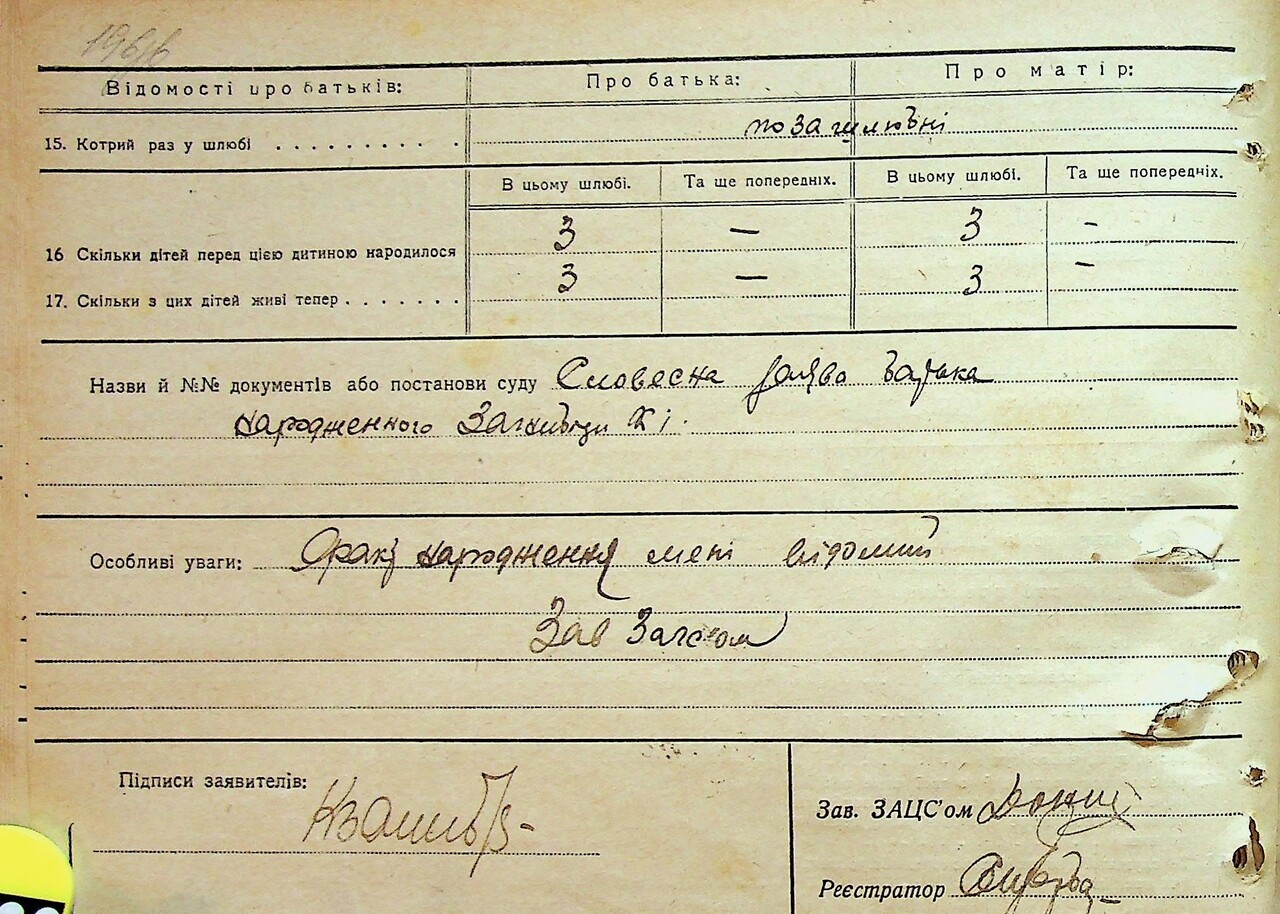 Відомості про батьків: Про батька: Про матір:
15. Котрий раз у шлюбі . . . . . . . . . . позашлюбні
В цьому шлюбі. Та ще попередніх. В цьому шлюбі. Та ще попередніх.
16 Скільки дітей перед цією дитиною народилося 3 — 3 -
17. Скільки з цих дітей живі тепер . . . . . . . 3 — 3 -
Назви й №№ документів або постанови суду Словесна заява батька
народженного
Особливі уваги: Факт народження мені відомий
Зав Загсом
Підписи заявителів:
Зав. ЗАЦС'ом
Реєстратор